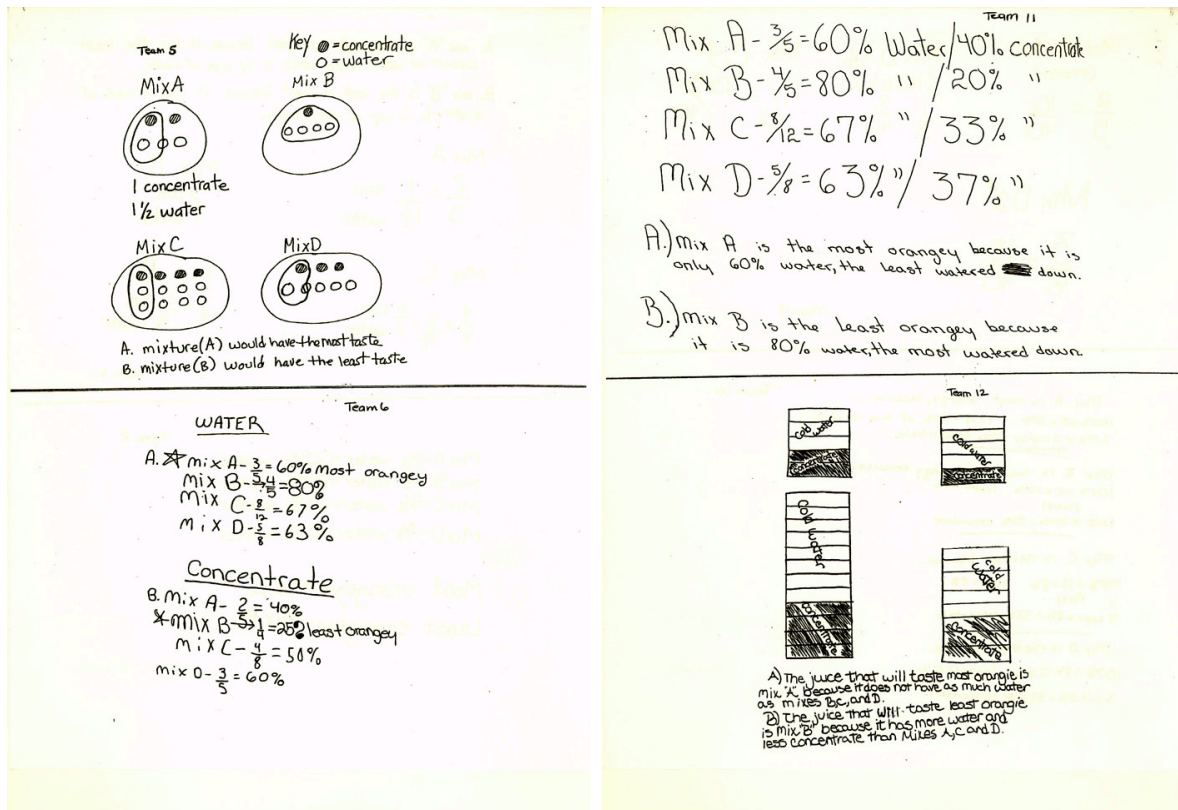 Team 5
Key = concentrate
= water
Mix A
Mix B
1 concentrate
1 1/2 water
Mix C
Mix D
A. mixture (A) would have the most taste
B. mixture (B) would have the least taste
Team 6
WATER
A. mix A - 3/5 = 60% most orangey
mix B - 4/5 = 80%
mix C - 8/12 = 67%
mix D - 5/8 = 63%
Concentrate
B. mix A - 2/5 = 40%
mix B → 1/4 = 25% least orangey
mix C - 4/8 = 50%
mix D - 3/5 = 60%
Team 11
Mix A - 3/5 = 60% Water/40% concentrate
Mix B - 4/5 = 80% " /20% "
Mix C - 8/12 = 67% " / 33% "
Mix D - 5/8 = 63% " / 37% "
A.) mix A is the most orangey because it is
only 60% water, the least watered down.
B.) mix B is the least orangey because
it is 80% water, the most watered down.
Team 12
Cold water
Concentrate
cold water
concentrate
Cold Water
Concentrate
cold water
Concentrate
A) The juice that will taste most orangie is
mix "A" because it does not have as much water
as mixes B, C, and D.
B) The juice that will taste least orangie
is mix "B" because it has more water and
less concentrate than Mixes A, C and D.